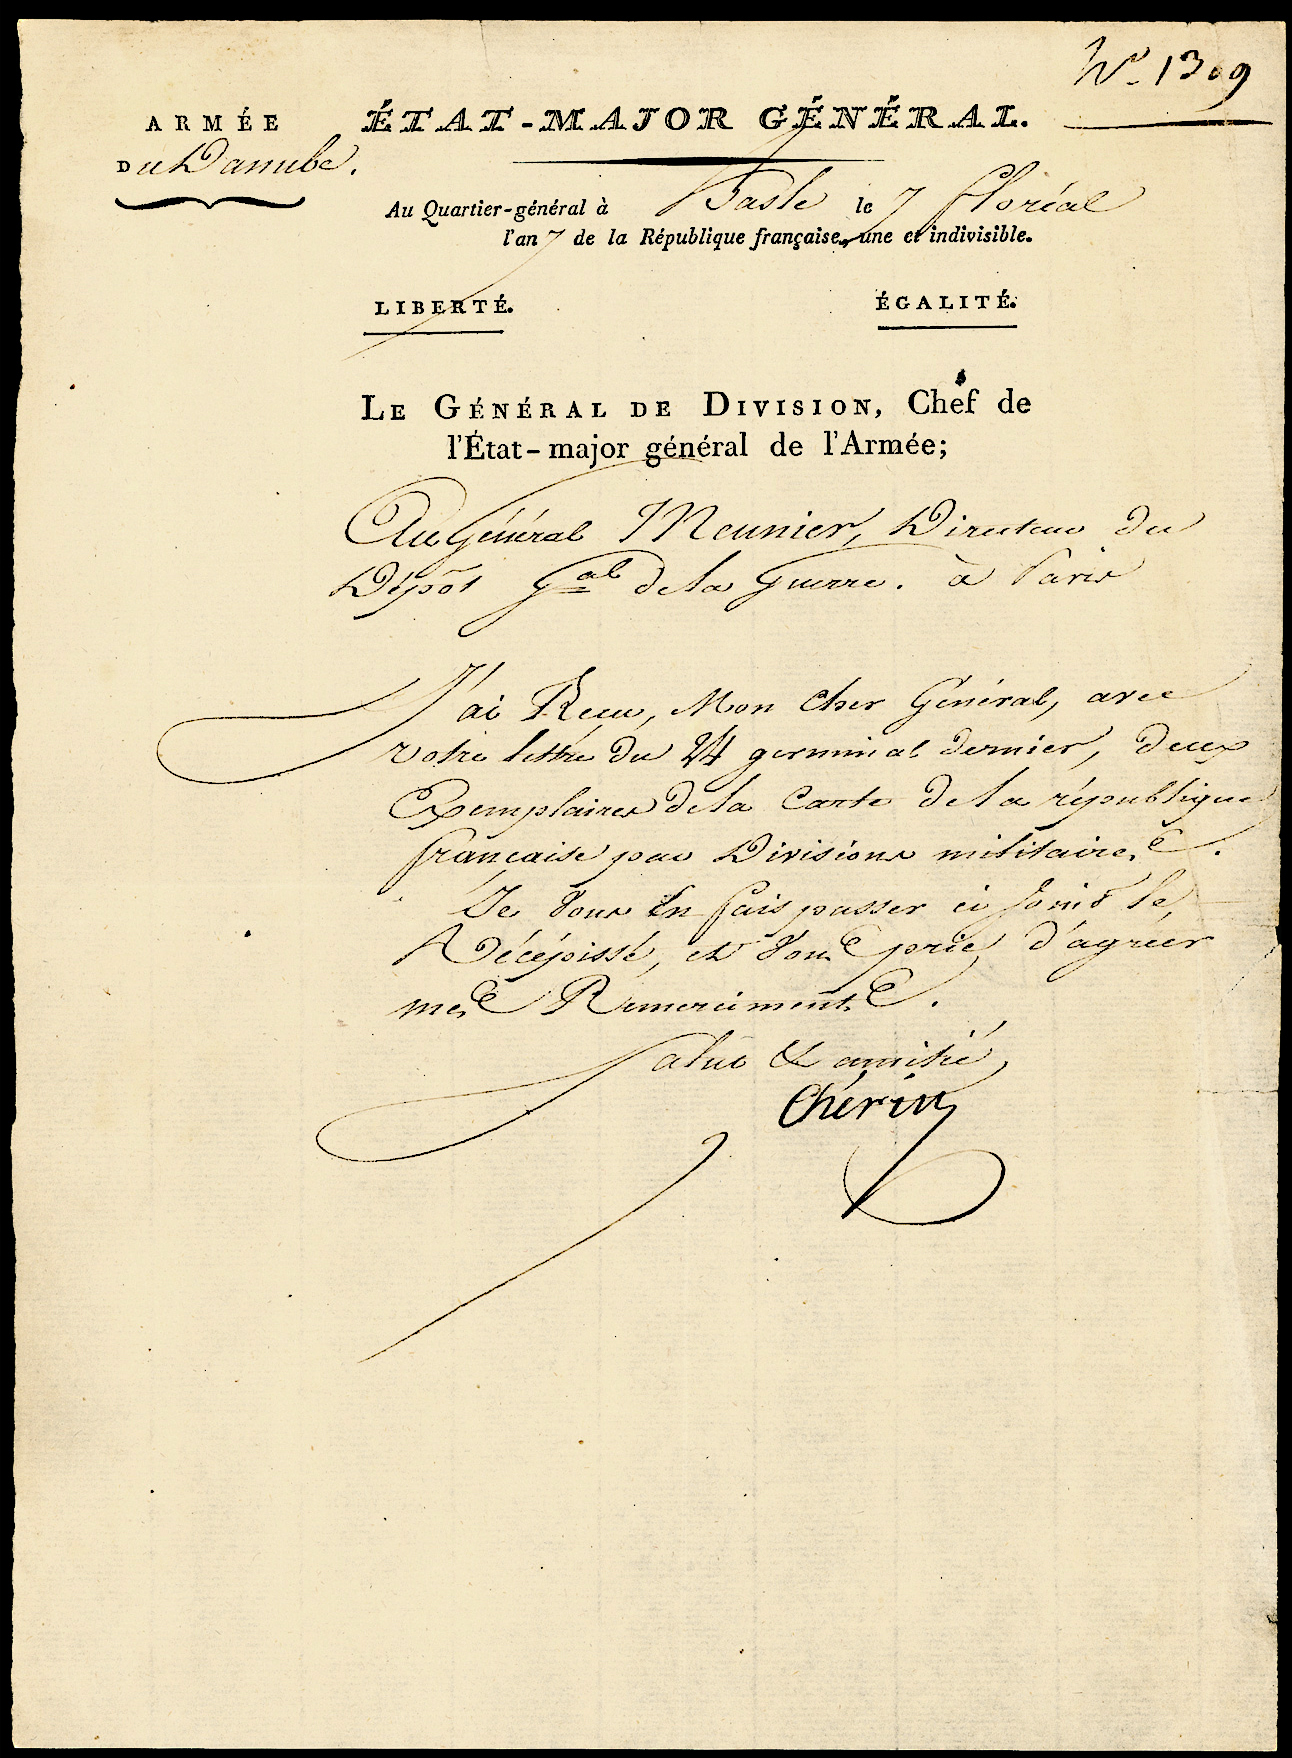 N.o 1309
ARMÉE
ÉTAT-MAJOR GÉNÉRAL.
Du Danube.
Au Quartier-général à Basle le 7 floréal
l'an 7 de la République française, une et indivisible.
LIBERTÉ. ÉGALITÉ.
LE GÉNÉRAL DE DIVISION, Chef de
l'État-major général de l'Armée;
Au Général Meunier, Directeur du
Dépôt Gal de la Guerre. à Paris
J'ai Recu, Mon Cher Général, avec
votre lettre du 24 germinal dernier, deux
Exemplaires de la Carte de la république
française par Divisions militaires.
Je Vous En fais passer ci joint le
Récépissé, et Vous prie d'agréer
mes Remerciments.
Salut & amitié,
Chérin